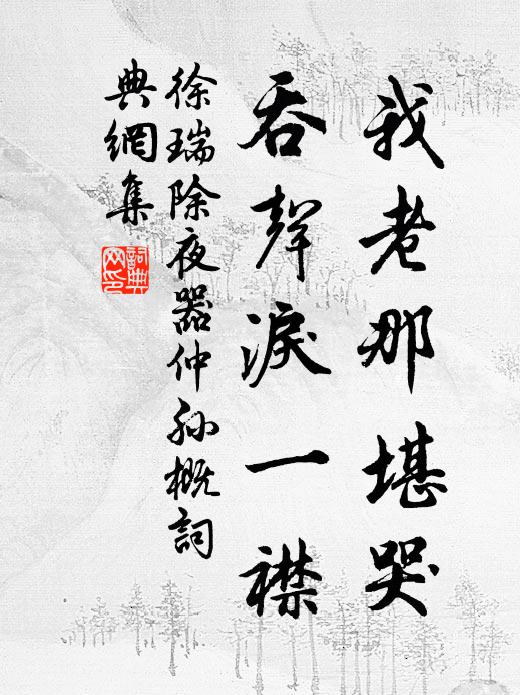 我老那堪哭
吞聲淚一襟
徐瑞除夜器仲孫概詞
典網集
詞典網印